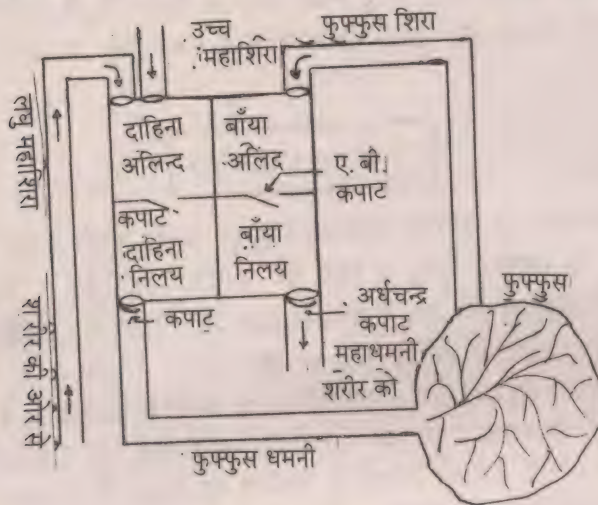 उच्च
महाशिरा
फुफ्फुस शिरा
लघु महाशिरा
दाहिना
अलिन्द
बाँया
अलिंद
ए. बी.
कपाट
कपाट
दाहिना
निलय
बाँया
निलय
कपाट
अर्धचन्द्र
कपाट
महाधमनी
शरीर को
फुफ्फुस
शरीर की ओर से
फुफ्फुस धमनी